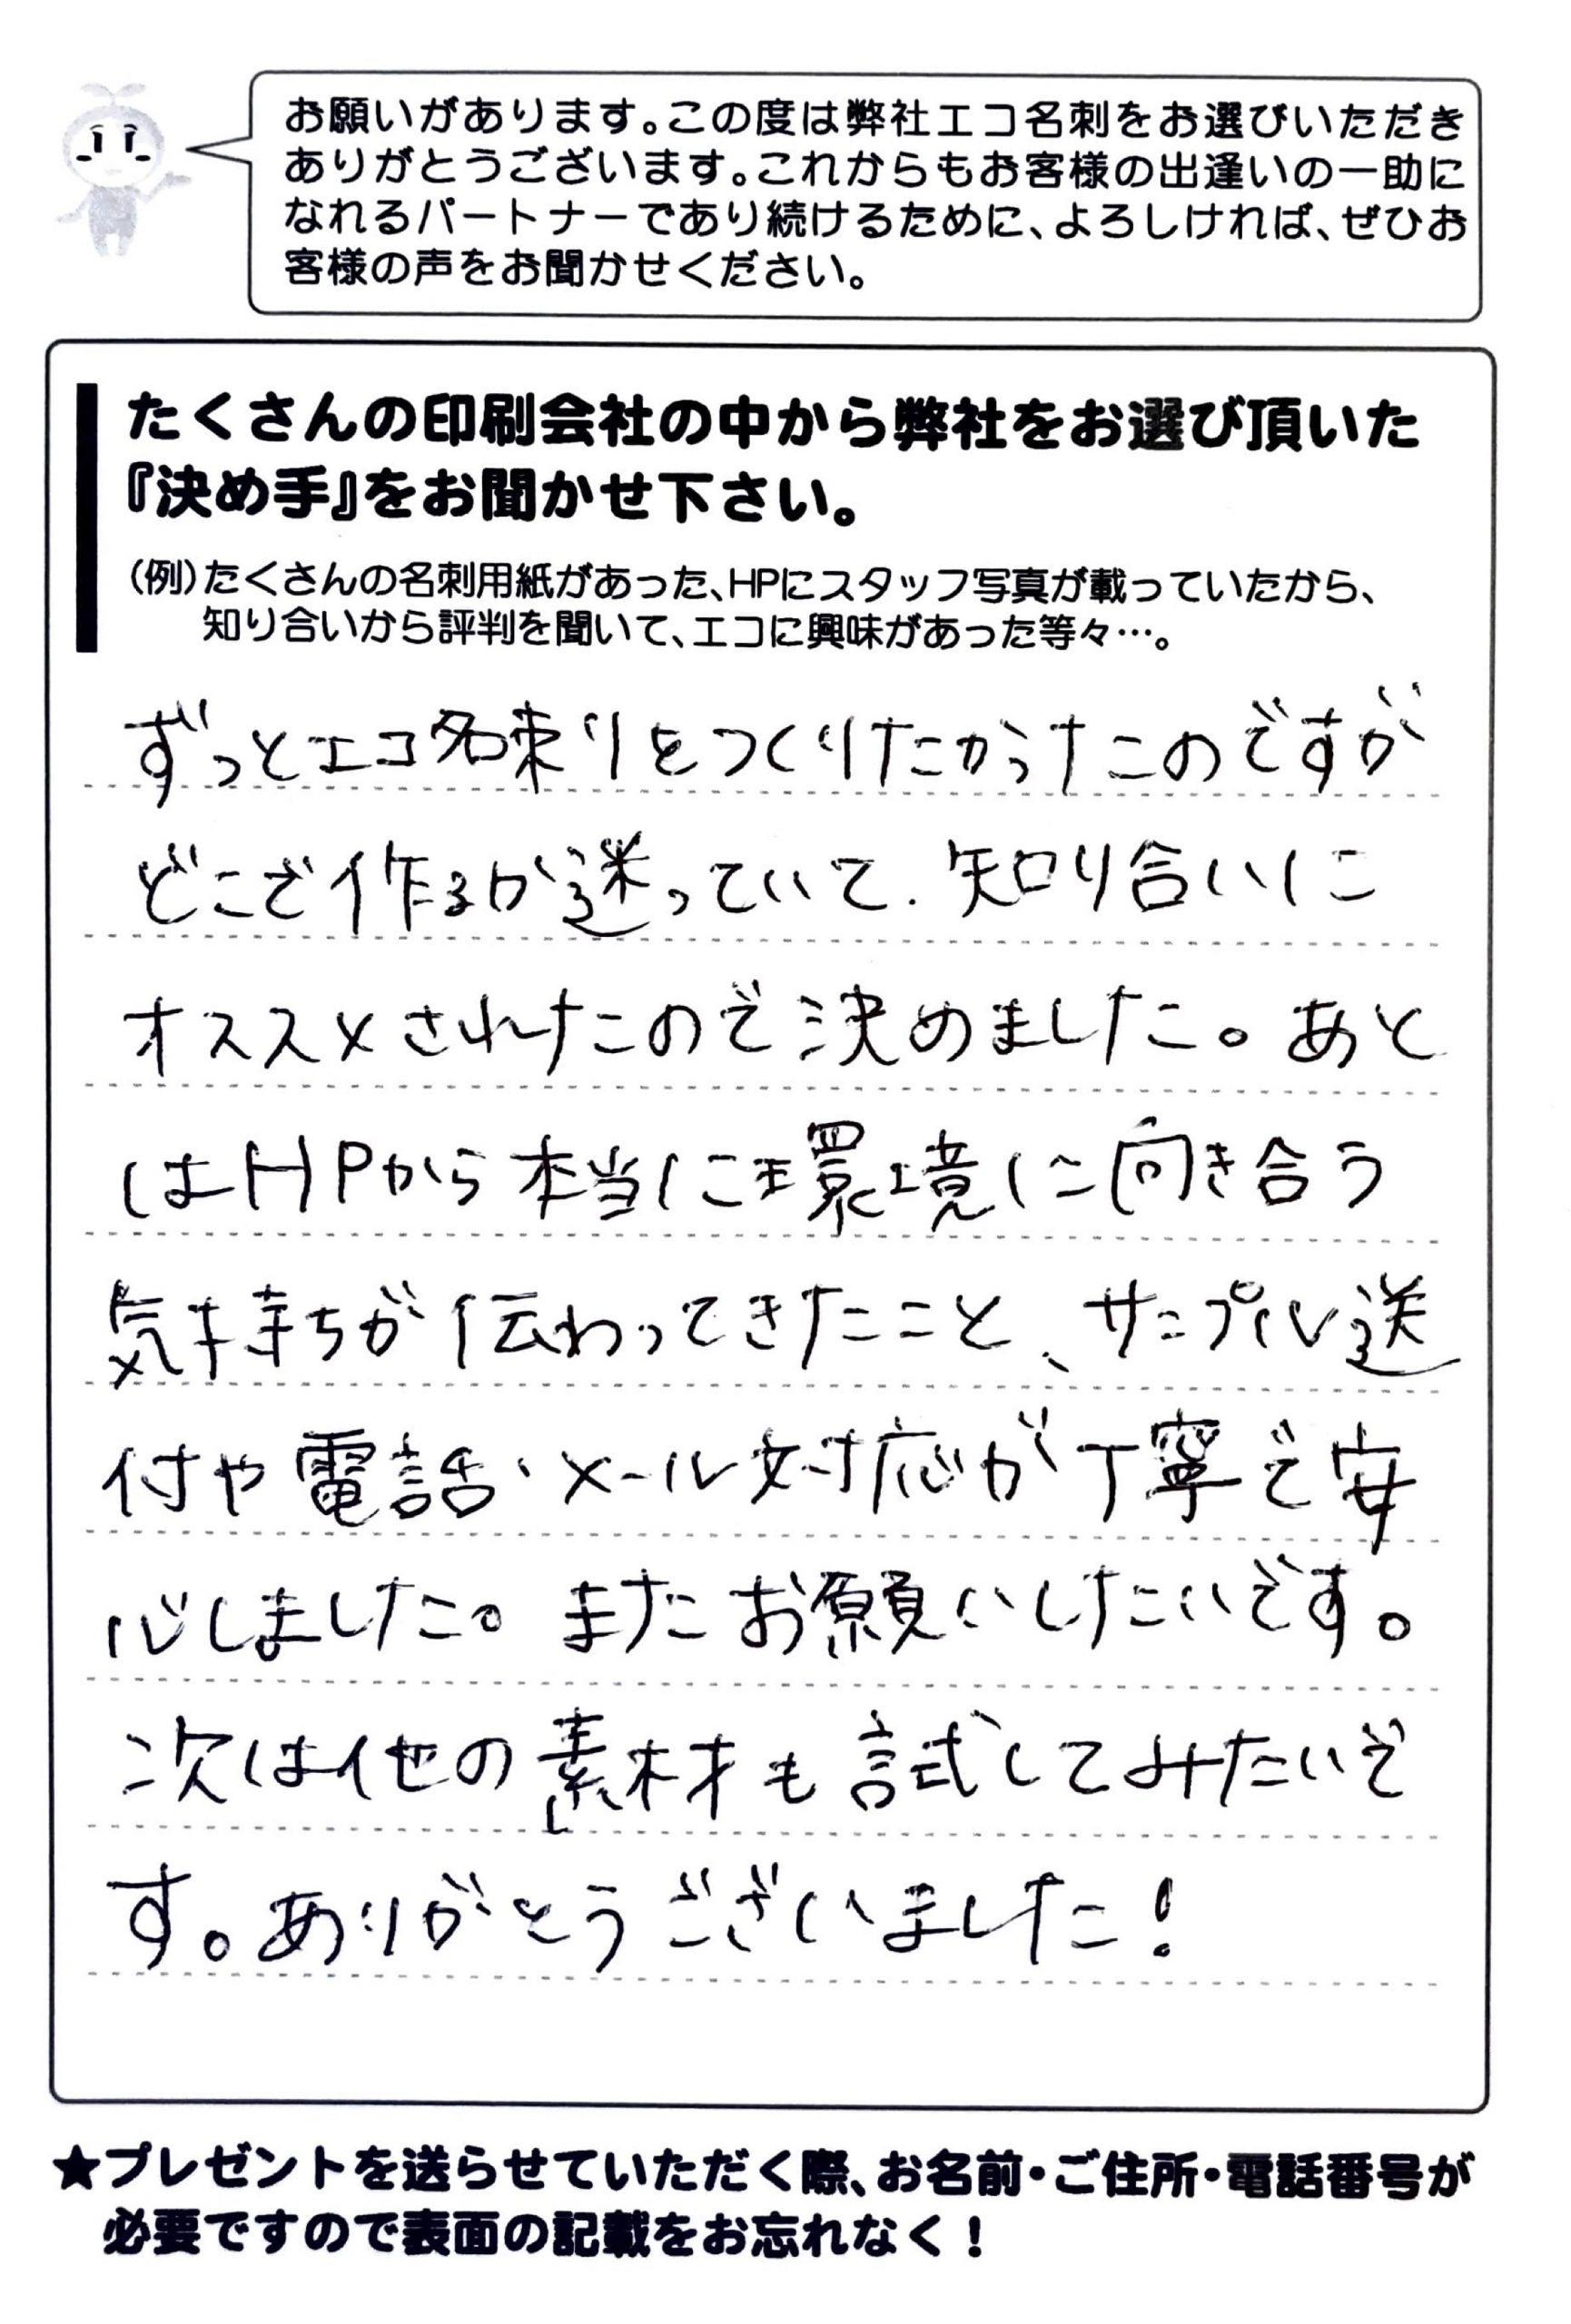 お願いがあります。この度は弊社エコ名刺をお選びいただき
ありがとうございます。これからもお客様の出逢いの一助に
なれるパートナーであり続けるために、よろしければ、ぜひお
客様の声をお聞かせください。
たくさんの印刷会社の中から弊社をお選び頂いた
『決め手』をお聞かせ下さい。
(例)たくさんの名刺用紙があった、HPにスタッフ写真が載っていたから、
知り合いから評判を聞いて、エコに興味があった等々…。
ずっとエコ名刺をつくりたかったのですが
どこで作るか迷っていて、知り合いに
オススメされたので決めました。あと
はHPから本当に環境に向き合う
気持ちが伝わってきたこと、サンプル送
付や電話・メール対応が丁寧で安
心しました。またお願いしたいです。
次は他の素材も試してみたいで
す。ありがとうございました!
★プレゼントを送らせていただく際、お名前・ご住所・電話番号が
必要ですので表面の記載をお忘れなく!